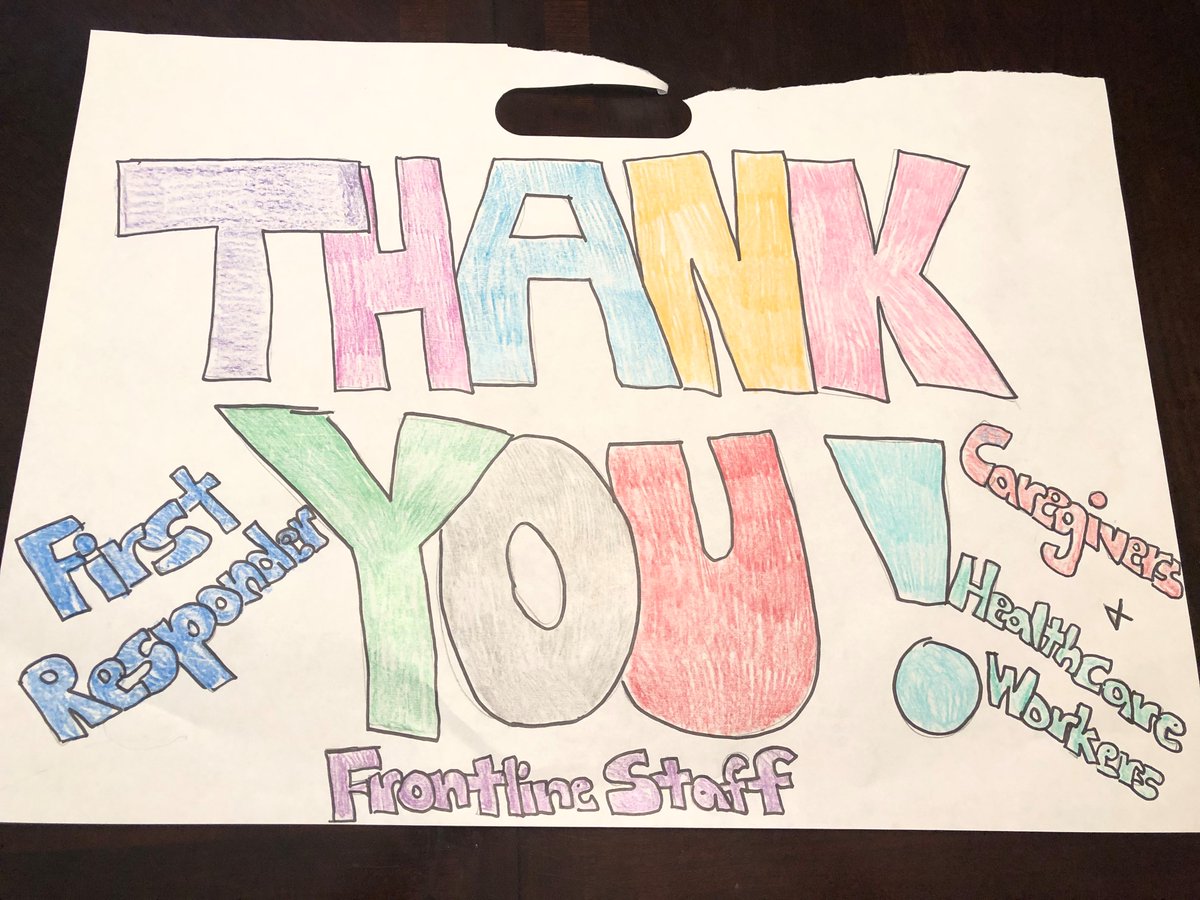 THANK
YOU!
First
Responder
Caregivers
+
Healthcare
Workers
Frontline Staff